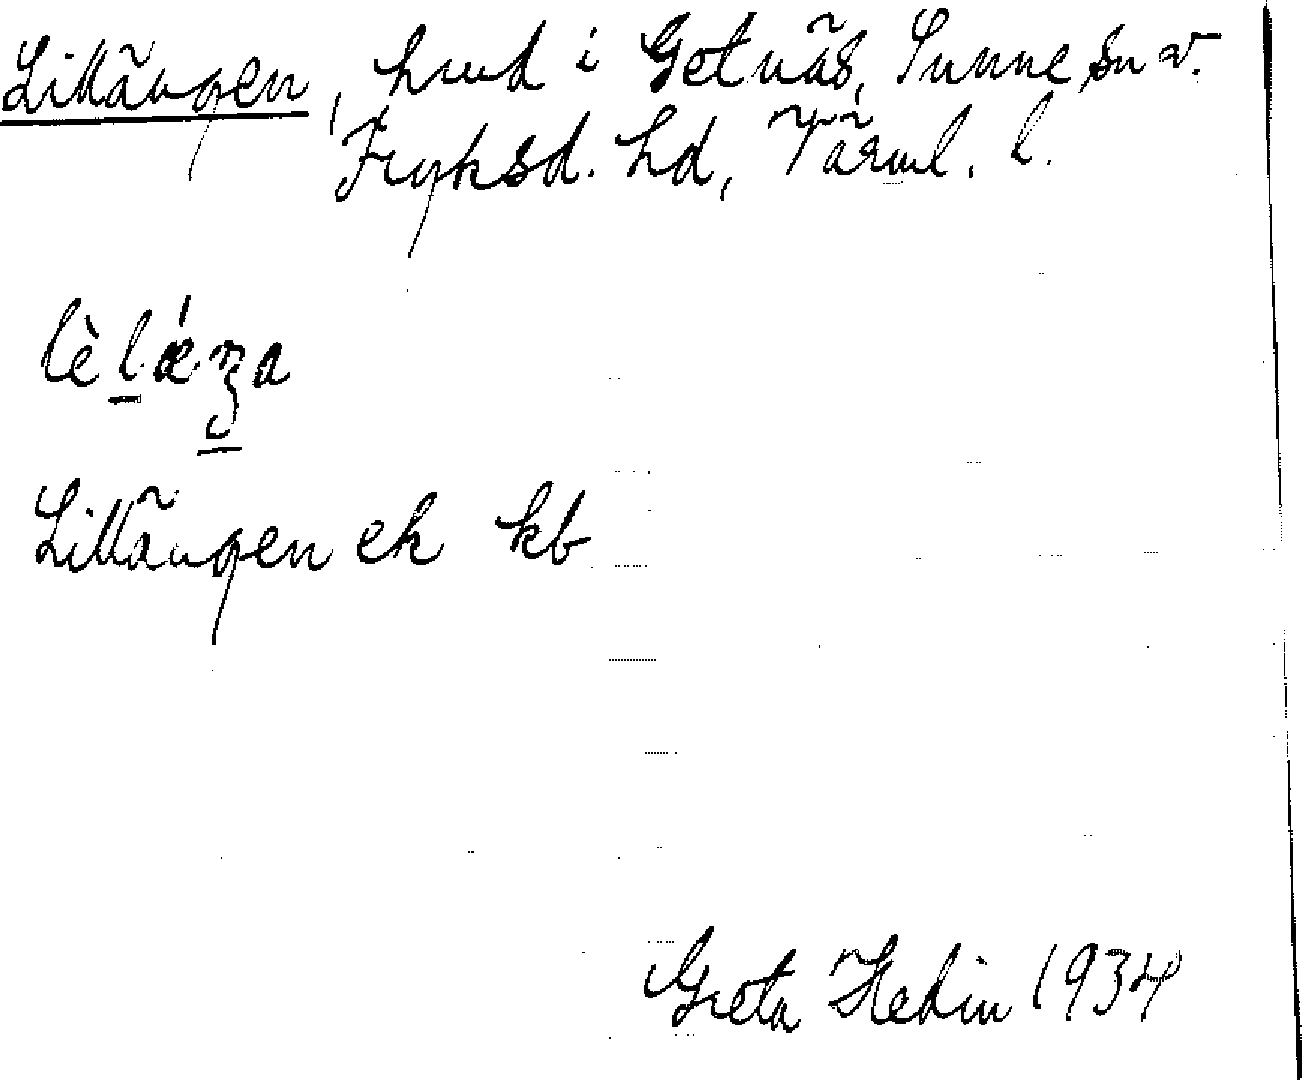 Lillängen, hmd i Getnäs, Sunne sn v.
Fryksd. hd, Värml. l.
lèlǽŋa
Lillängen ek kb
Greta Hedin 1934